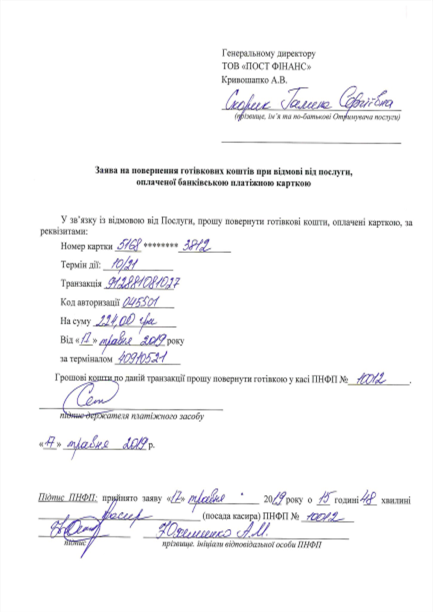 Генеральному директору
ТОВ «ПОСТ ФІНАНС»
Кривошапко А.В.
Скорик Галина Сергіївна
(прізвище, ім'я та по-батькові Отримувача послуги)
Заява на повернення готівкових коштів при відмові від послуги,
оплаченої банківською платіжною карткою
У зв'язку із відмовою від Послуги, прошу повернути готівкові кошти, оплачені карткою, за
реквізитами:
Номер картки 5168 ******** 3812
Термін дії: 10/21
Транзакція 912881081027
Код авторизації 045501
На суму 224,00 грн
Від «17» травня 2019 року
за терміналом 40910521
Грошові кошти по даній транзакції прошу повернути готівкою у касі ПНФП № 10012.
підпис держателя платіжного засобу
«17» травня 2019 р.
Підпис ПНФП: прийнято заяву «17» травня 2019 року о 15 годині 48 хвилині
касир (посада касира) ПНФП № 10012
А.М.
підпис прізвище, ініціали відповідальної особи ПНФП